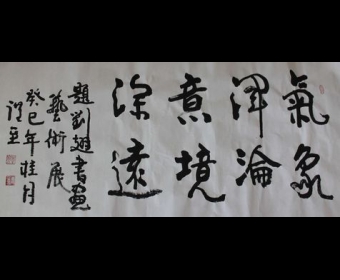 氣象
渾淪
意境
深遠
題劉迺書畫
藝術展
癸巳年桂月